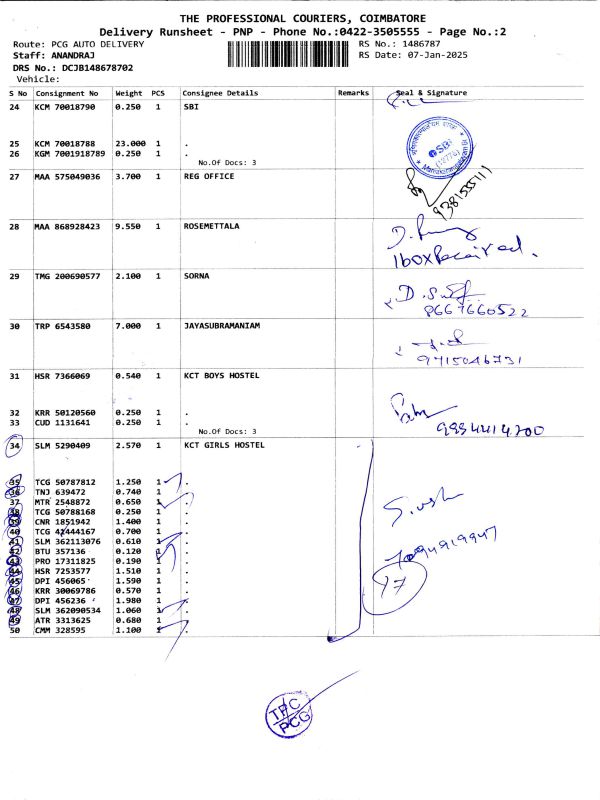 THE PROFESSIONAL COURIERS, COIMBATORE
Delivery Runsheet - PNP - Phone No.:0422-3505555 - Page No.:2
Route: PCG AUTO DELIVERY RS No.: 1486787
Staff: ANANDRAJ RS Date: 07-Jan-2025
DRS No.: DCJB148678702
Vehicle:
S No Consignment No Weight PCS Consignee Details Remarks Seal & Signature
24 KCM 70018790 0.250 1 SBI
25 KCM 70018788 23.000 1 .
26 KGM 7001918789 0.250 1 .
No.Of Docs: 3
SBI
27 MAA 575049036 3.700 1 REG OFFICE
9381555111
28 MAA 868928423 9.550 1 ROSEMETTALA
1box Received.
29 TMG 200690577 2.100 1 SORNA
8667660522
30 TRP 6543580 7.000 1 JAYASUBRAMANIAM
9715046731
31 HSR 7366069 0.540 1 KCT BOYS HOSTEL
32 KRR 50120560 0.250 1 .
33 CUD 1131641 0.250 1 .
No.Of Docs: 3
9994414200
34 SLM 5290409 2.570 1 KCT GIRLS HOSTEL
35 TCG 50787812 1.250 1 .
36 TNJ 639472 0.740 1 .
37 MTR 2548872 0.650 1 .
38 TCG 50788168 0.250 1 .
39 CNR 1851942 1.400 1 .
40 TCG 42444167 0.700 1 .
41 SLM 362113076 0.610 1 .
42 BTU 357136 0.120 1 .
43 PRO 17311825 0.190 1 .
44 HSR 7253577 1.510 1 .
45 DPI 456065 1.590 1 .
46 KRR 30069786 0.570 1 .
47 DPI 456236 1.980 1 .
48 SLM 362090534 1.060 1 .
49 ATR 3313625 0.680 1 .
50 CMM 328595 1.100 1 .
17
TPC
PCG